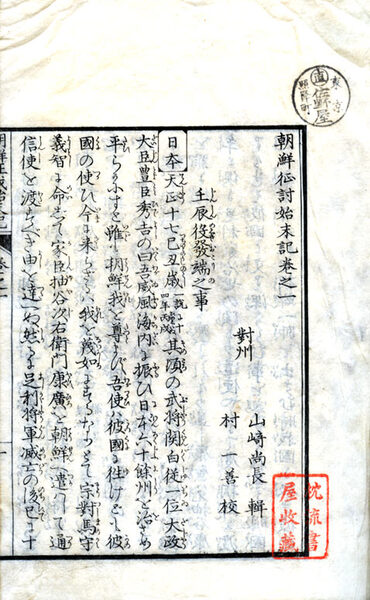 東京
直
佐野屋
朝鮮征討始末記卷之一
對州 山﨑尚長 輯
村 一善 校
壬辰役發端之事
日本 天正十七己丑歳 其頃の武将関白従一位大政
大臣豊臣秀吉の曰吾威風海内に振ひ日本六十餘州を治め
平らかにすと雖朝鮮我を尊まず吾使ハ彼國に往けども彼
國の使ひ今に来らざるハ我を蔑如にするなりとて宗對馬守
義智に命じて家臣柚谷次右衛門康廣を朝鮮へ遣ハして通
信使を渡さるべき由を達 然るに足利将軍滅亡の後已に十
枕流書
屋收藏